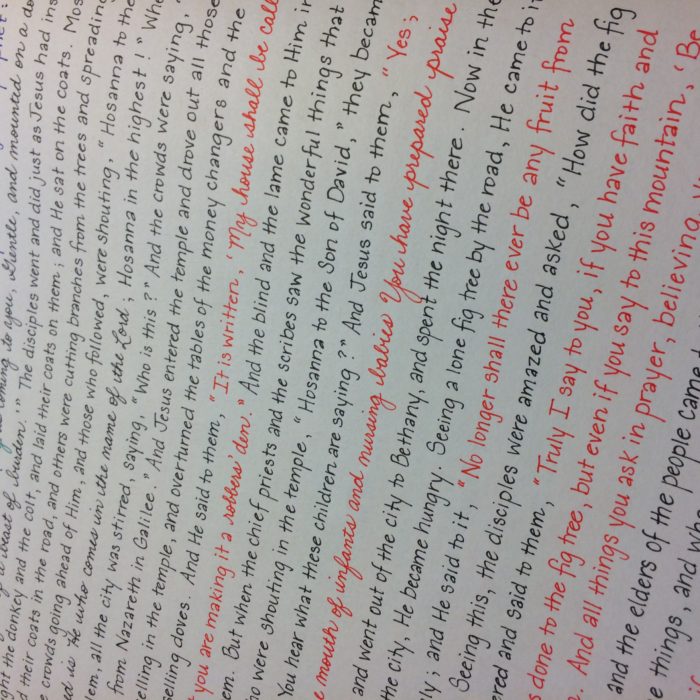 coming to you, Gentle, and mounted on a
beast of burden.'" The disciples went and did just as Jesus had ins
ght the donkey and the colt, and laid their coats on them; and He sat on the coats. Mos
d their coats in the road, and others were cutting branches from the trees and spreading
e crowds going ahead of Him, and those who followed, were shouting, "Hosanna to the
ed is He who comes in the name of the Lord; Hosanna in the highest!" Whe
lem, all the city was stirred, saying, "Who is this?" And the crowds were saying, "
from Nazareth in Galilee." And Jesus entered the temple and drove out all those
elling in the temple, and overturned the tables of the money changers and the
elling doves. And He said to them, "It is written, 'My house shall be call
you are making it a robbers' den." And the blind and the lame came to Him in
em. But when the chief priests and the scribes saw the wonderful things that
o were shouting in the temple, "Hosanna to the Son of David," they becam
You hear what these children are saying?" And Jesus said to them, "Yes;
e mouth of infants and nursing babies You have prepared praise
and went out of the city to Bethany, and spent the night there. Now in the
the city, He became hungry. Seeing a lone fig tree by the road, He came to i
y; and He said to it, "No longer shall there ever be any fruit from
Seeing this, the disciples were amazed and asked, "How did the fig
ered and said to them, "Truly I say to you, if you have faith and
s done to the fig tree, but even if you say to this mountain, 'Be
And all things you ask in prayer, believing,
and the elders of the people came
e things, and who